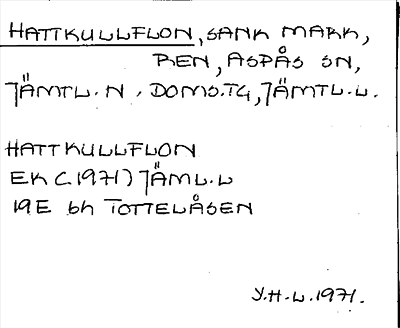 HATTKULLFLON, SANK MARK,
REN, ASPÅS SN,
JÄMTL. N. DOMS.TG, JÄMTL.L.
HATTKULLFLON
EK (1971) JÄML.L
19E 6h TOTTELÅSEN
Y.H-L.1971.